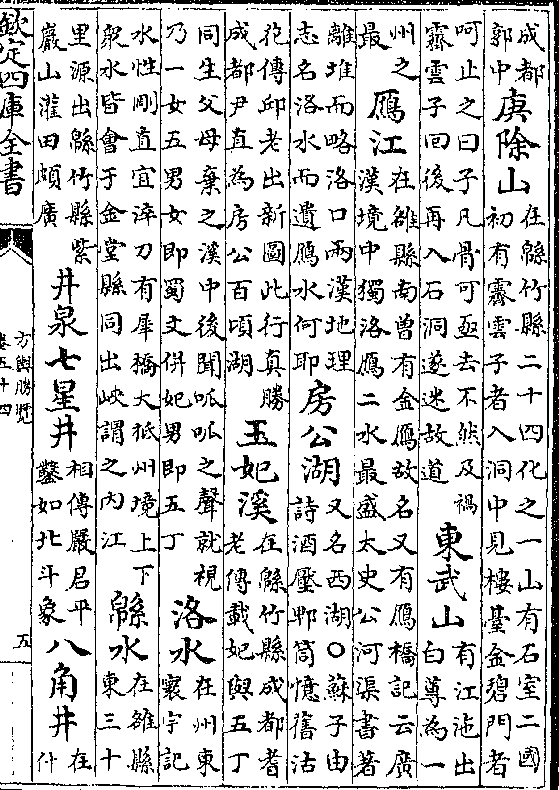 成都
郭中
庚除山
在緜竹縣二十四化之一山有石室二國
初有霽雲子者入洞中見樓臺金碧門者
呵止之曰子凡骨可亟去不然及禍
霽雲子回後再入石洞遂迷故道
東武山
有江沲出
白蓴為一
州之
最
鴈江
在雒縣南曾有金鴈故名又有鴈橋記云廣
漢境中獨洛鴈二水最盛太史公河渠書著
離堆而略洛口兩漢地理
志名洛水而遺鴈水何耶
房公湖
又名西湖○蘇子由
詩酒壓郫筒憶舊沽
花傳邱老出新圖此行真勝
成都尹直為房公百頃湖
玉妃溪
在緜竹縣成都耆
老傳載妃與五丁
同生父母棄之溪中後聞呱呱之聲就視
乃一女五男女即蜀文併妃男即五丁
洛水
在州東
寰宇記
水性剛直宜淬刀有犀橋大抵州境上下
衆水皆會于金堂縣同出峽謂之內江
緜水
在雒縣
東三十
里源出緜竹縣紫
巖山灌田頗廣
井泉七星井
相傳嚴君平
鑿如北斗象
八角井
在
什
欽定四庫全書
方輿勝覽
卷五十四
五